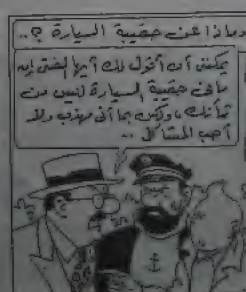 وماذا عن حقيبة السيارة ؟..
يمكنني أن أقول لك أيها الفتى إن
ما في حقيبة السيارة ليس من
شأنك ، ولكن بما أني مهذب ولا
أحب المشاكل ..